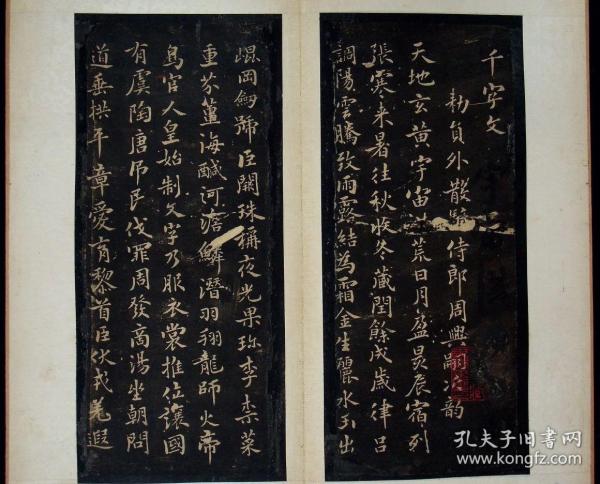 千字文
勅員外散騎侍郎周興嗣次韵
天地玄黃宇宙荒日月盈昃辰宿列
張寒来暑往秋收冬藏閏餘成歲律吕
調陽雲騰致雨露結為霜金生麗水玉出
崐岡劒號巨闕珠稱夜光果珎李柰菜
重芥薑海醎河澹鱗潛羽翔龍師火帝
鳥官人皇始制文字乃服衣裳推位讓國
有虞陶唐吊民伐罪周發商湯坐朝問
道垂拱平章愛育黎首臣伏戎羌遐
孔夫子旧书网
www.kongfz.com